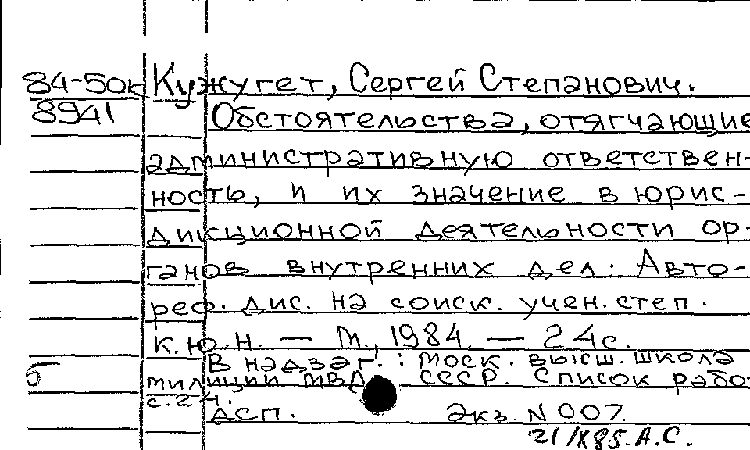 84-50к Кужугет, Сергей Степанович.
8941 Обстоятельства, отягчающие
административную ответствен-
ность, и их значение в юрис-
дикционной деятельности ор-
ганов внутренних дел: Авто-
реф. дис. на соиск. учен. степ.
к.ю.н. — М., 1984. — 24с.
В надзаг.: Моск. высш. школа
б милиции МВД СССР. Список рабо-
с. 24.
ДСП. Экз. N 007.
21/X85. А.С.